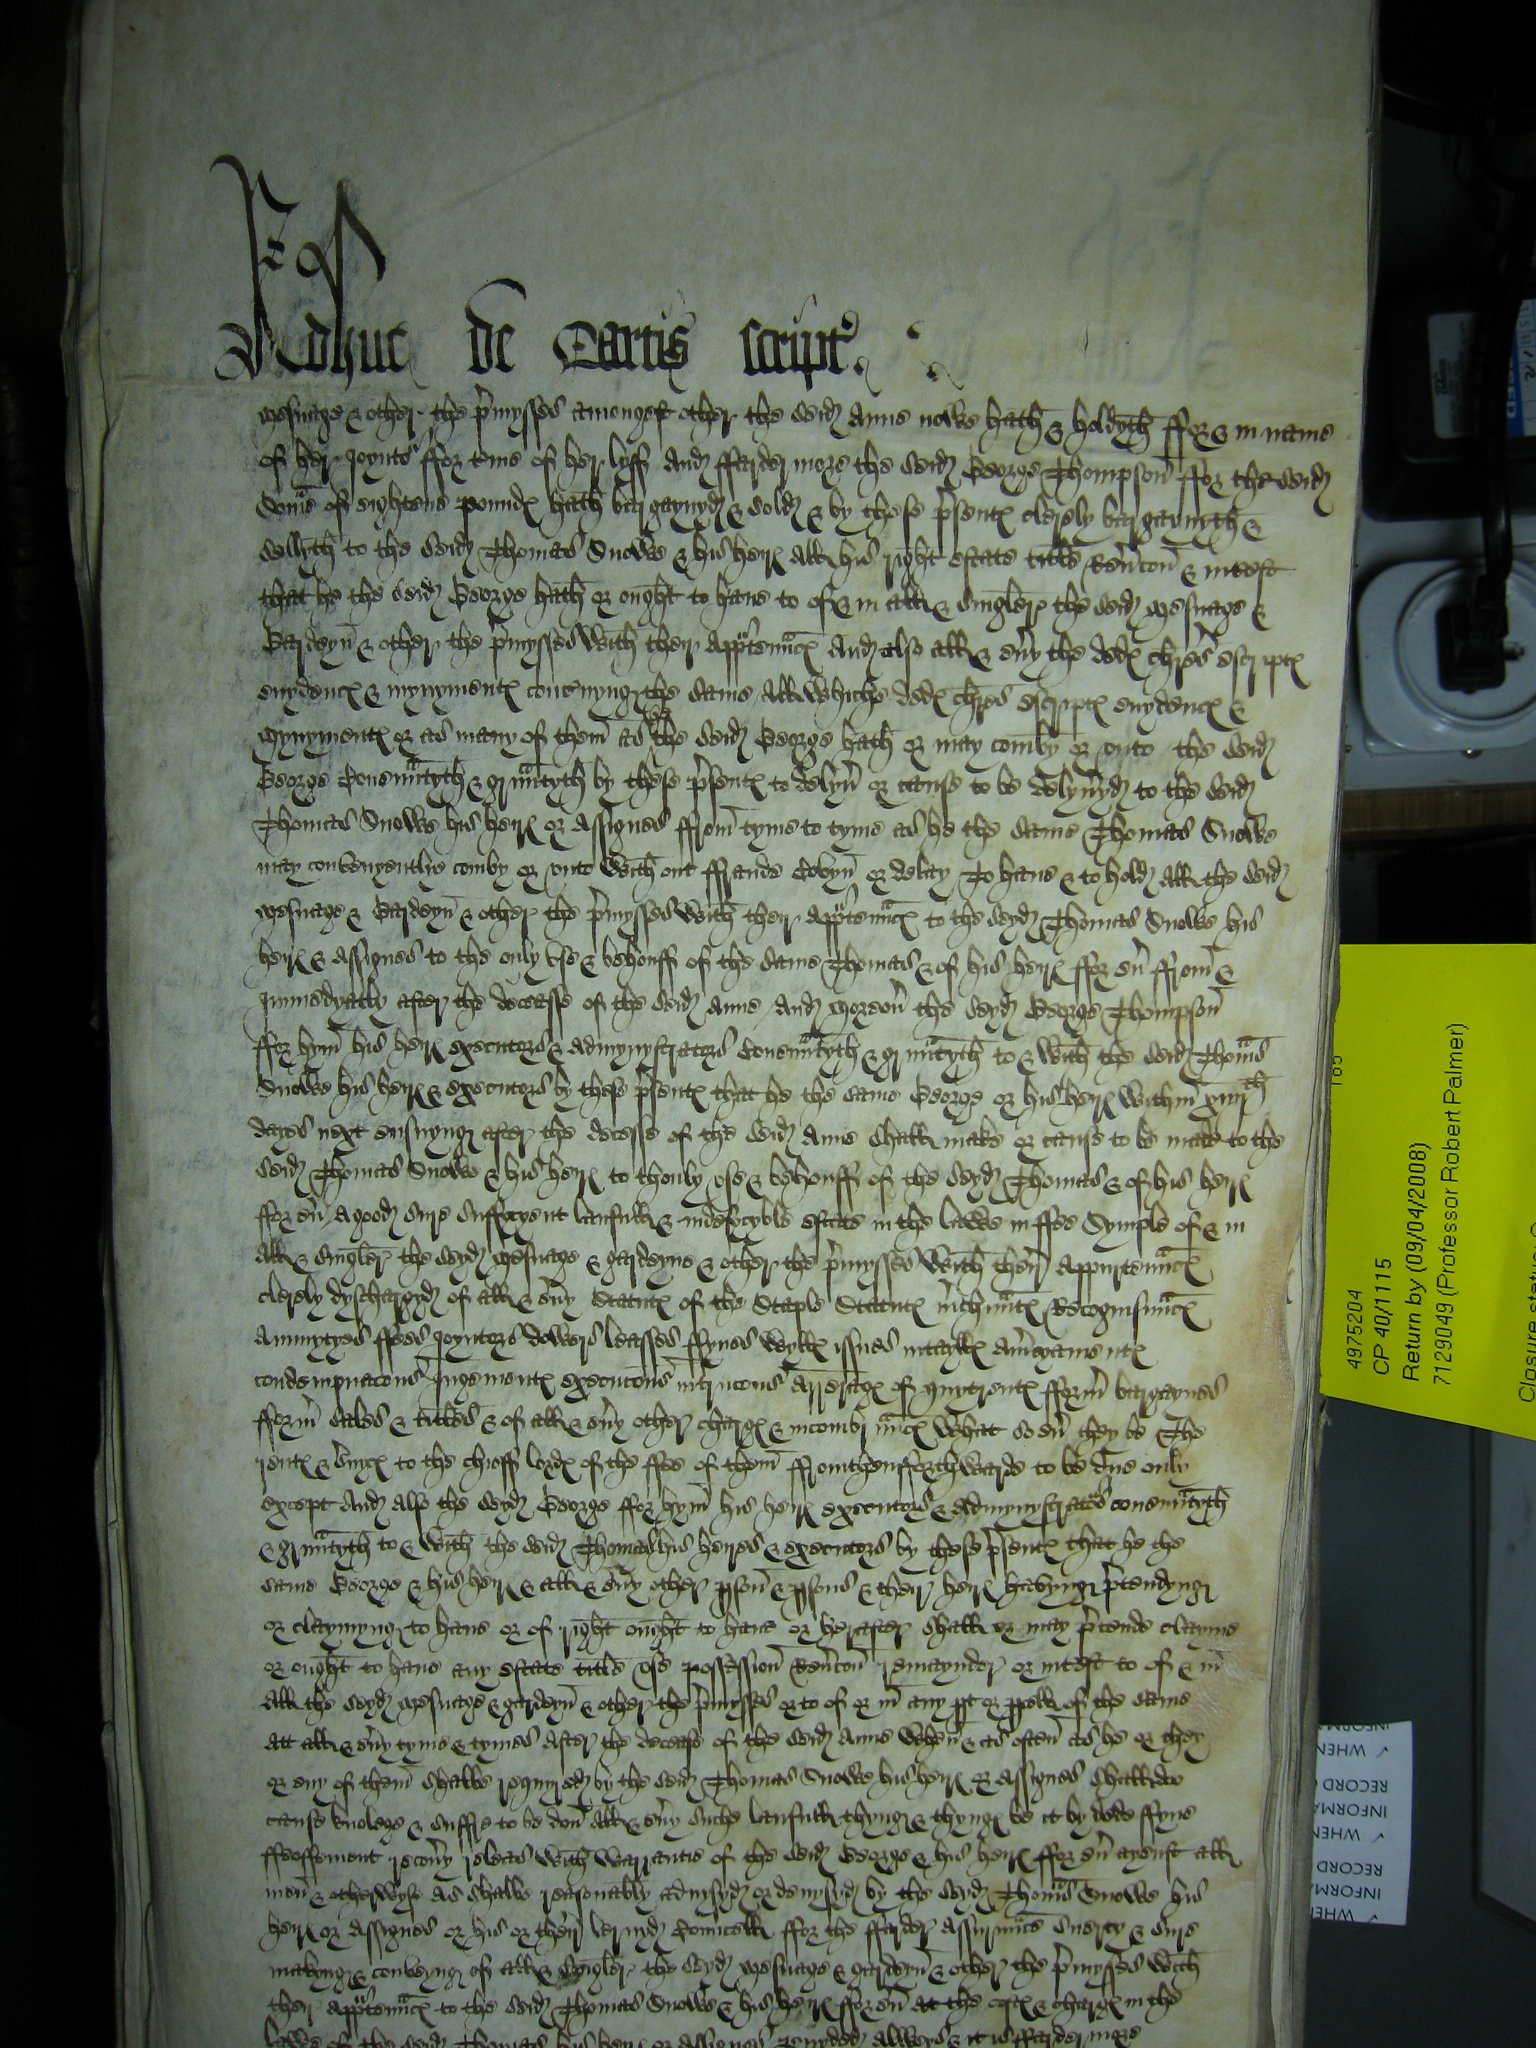 Adhuc de Cartis script
mesuage & other the p'mysses amongest other the seid Anne nowe hath & holdyth ffor & in name
of her Joynto' ffor t'me of her lyff And ffarder more the seid George Thompson ffor the seid
Som'e of eightene pound hath bargaynyd & sold & by these p'sent clerely bargaynyth &
sellyth to the seid Thomas Snowe & his heir all his right estate title Rev'cion & int'est
that he the seid George hath or ought to have to of & in all & singler the seid mesuage &
Gardeyn & other the p'mysses with ther app'ten'nc And also all & ev'y the ded chres escript
evydenc & mynyment conc'nyng the same All whiche ded chres escript evydenc &
mynyment or as many of them as the seid George hath or may comby or unto the seid
George Coven'ntyth & g'ntyth by these p'sent to delyv' or cause to be delyv'yd to the seid
Thomas Snowe his heir or Assignes ffrom tyme to tyme as he the same Thomas Snowe
may convenyentlie comby or unto with out ffraude Covyn or delay To have & to hold All the seid
mesuage & Gardeyn & other the p'mysses with ther app'ten'nc to the seyd Thomas Snowe his
heir & Assignes to the only use & behouff of the same Thomas & of his heir ffor ev' ffrom &
Immedyatly after the decesse of the seid Anne And moreov' the seyd George Thompson
ffor hym his heir executors & admynystrators Coven'ntyth & g'ntyth to & with the seid Thom's
Snowe his heir & executors by these p'sent that he the same George or his heir within
dayes next ensuyng after the decesse of the seid Anne shall make or cause to be made to the
seid Thomas Snowe & his heir to thonly use & behouff of the seyd Thomas & of his heir
ffor ev' A good sure suffycyent laufull & indefecyble estate in the lawe in ffee Symple of & in
All & singler the seyd mesuage & gardeyne & other the p'mysses with ther Appurten'nc
clerely dyschargyd of all & ev'y Statut of the Staple Statut m'ch'nt Recognis'nc
Annuytyes ffees Joyntors dowers leasses ffynes wyll issues intayll Am'cyament
condempnacons Jugement execucons intrucons Arrerag of rent fform' bargaynes
fform' sales & titles & of all & ev'y other charg & incombr'nc what so ev' they be The
rent & s'vic to the chieff lord of the ffee of them ffromthensfforthwarde to be due only
except And Also the seyd George ffor hym his heir executors & Admynystrato's coven'ntyth
& g'ntyth to & with the seid Thomas his heires & executors by these p'sent that he the
same George & his heir & all & ev'y other p'son & p'sons & their heir havyng p'tendyng
or claymyng to have or of right ought to have or herafter shall or may p'tende clayme
or ought to have any estate title use possession Rev'con remaynder or int'est to of & in
All the seyd mesuage & gardeyn & other the p'mysses or to of or in any p't or p'cell of the same
Att all & ev'y tyme & tymes After the decesse of the seid Anne when & as often as he or they
or eny of them shalbe requyred by the seid Thomas Snowe his heir or Assignes shall doo
cause knolege & suffre to be don All & ev'y suche laufull thyng & thyng be it by dede ffyne
ffeoffement recov'y releas with warrantie of the seid George & his heir ffor ev' ayenst all
men & otherwyse As shalbe reasonably advysyd or devysyd by the seyd Thom's Snowe his
heir or Assignes or his or ther lernyd Councell ffor the ffarder Assur'nce suerty & sure
makyng & conveyng of all & singler the seyd mesuage & gardeyn & other the p'mysses with
ther app'ten'nc to the seid Thomas Snowe & his heir ffor ev' At the cost & charg in the
lawe of the seid Thomas his heir or Assignes Provyded Alweys & it is ffarder more
4975204
CP 40/1115
Return by (09/04/2008)
7129049 (Professor Robert Palmer)
Closure status
WHEN
RECORD
INFORMA
WHEN
RECORD
INFORMA
WHEN